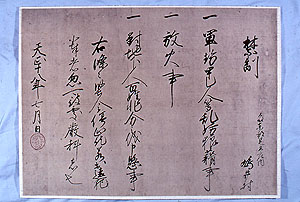 禁制
一 軍勢甲乙人等乱妨狼藉事
一 放火事
一 対地下人百姓非分之儀申懸事
右條々堅令停止訖若違犯
輩者忽可被處嚴科者也
天正十八年七月日